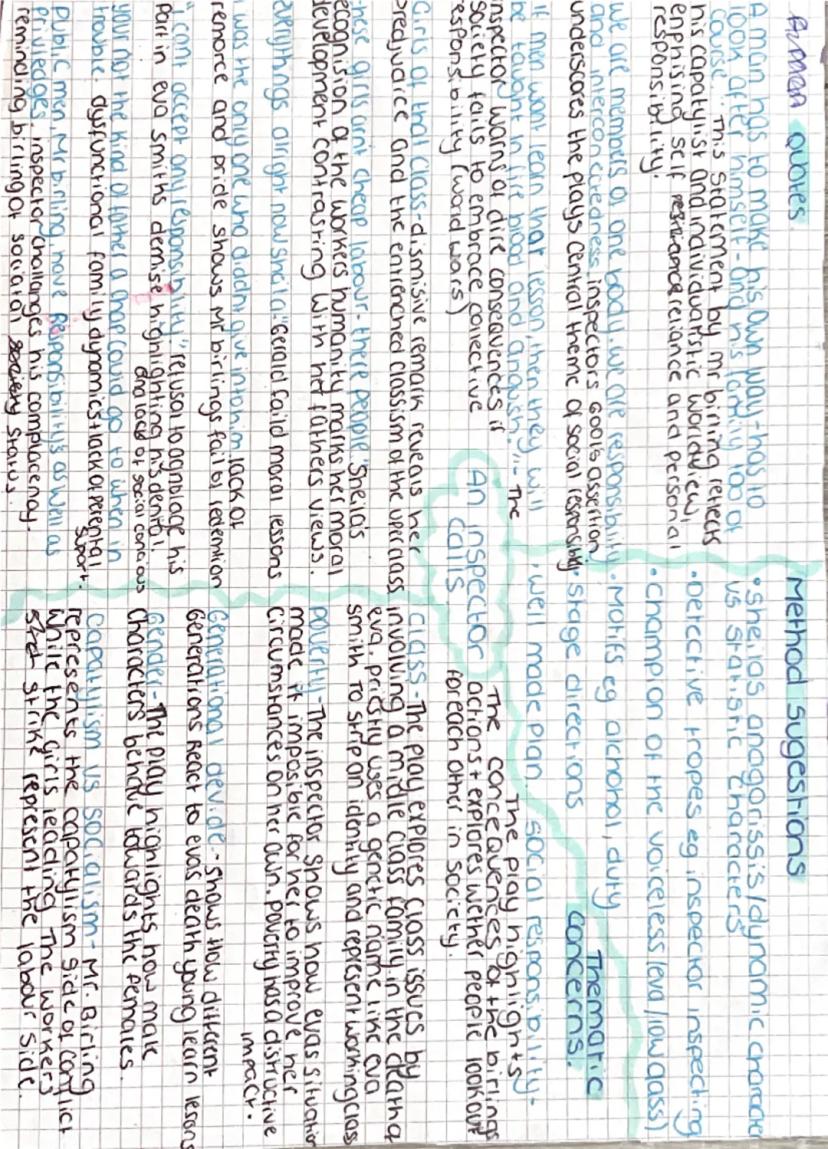 A*men quotes
A man has to make his own way - has to
look after himself - and his family too of
course... This statement by mr birling reflects
his capatylist and individualistic worldview,
enphising self reliance and personal
responsibility.
we are members of one body. we are responsibility
and interconcitedness inspectors gools assertion
underscores the plays central theme of social responsibility
If men wont lean that lesson, then they will
be taught in fire blood and anguish." - The
inspector warns of dire conseqvences if
society fails to embrace collective
responsibility (word wars)
Girls of that class - dismisive remark reveals her
predjuaice and the entrenched classism of the uperclass
these girls arn't cheap labour - there people "Sheila's
recognision of the workers humanity marks her moral
development contrasting with her fathers views.
everythings alright now sheila "Gerald faild moral lessons
I was the only one who didnt give into him lack of
remorce and pride shows Mr birlings fail of redemtion
"I cant accept any responsibility" refusal to agnolage his
part in eva smiths demise highlighting his denital
and lack of social concious
your not the kind of father a chap could go to when in
trouble. dysfunctional family dynamics + lack of perental
suport.
Public men, Mr birling, have responsibilitys as well as
privledges. inspector challanges his complacency.
reminding birling of sociatal status.
An inspector
calls
Method sugestions
• Sheilas anagorissis/dynamic character
vs statistic characters
• Detective tropes eg inspector inspecting
• Champion of the voiceless (eva/low class)
• Motifs eg alchohal, duty
• Stage directions
• well made plan
Thematic
concerns.
social responsibility -
The play highlights
The conceqvences of the birlings
actions + explores wether people look out
for each other in society.
Class - The play explores class issues by
involving a midle class family in the death of
eva. priestly uses a genetic name like eva
smith to strip an identity and represent working class
poverity - The inspector shows how evas situation
made it imposible for her to improve her
circumstances on her own. poverty has a distructive
impact.
Generational devide - shows how different
Generations React to evas death young learn lesons
Gender - The play highlights how male
characters behave towards the females.
Capatylism vs socialism - Mr. Birling
represents the capatylism side of conflict
while the girls leading The workers
strike represent the labour side.